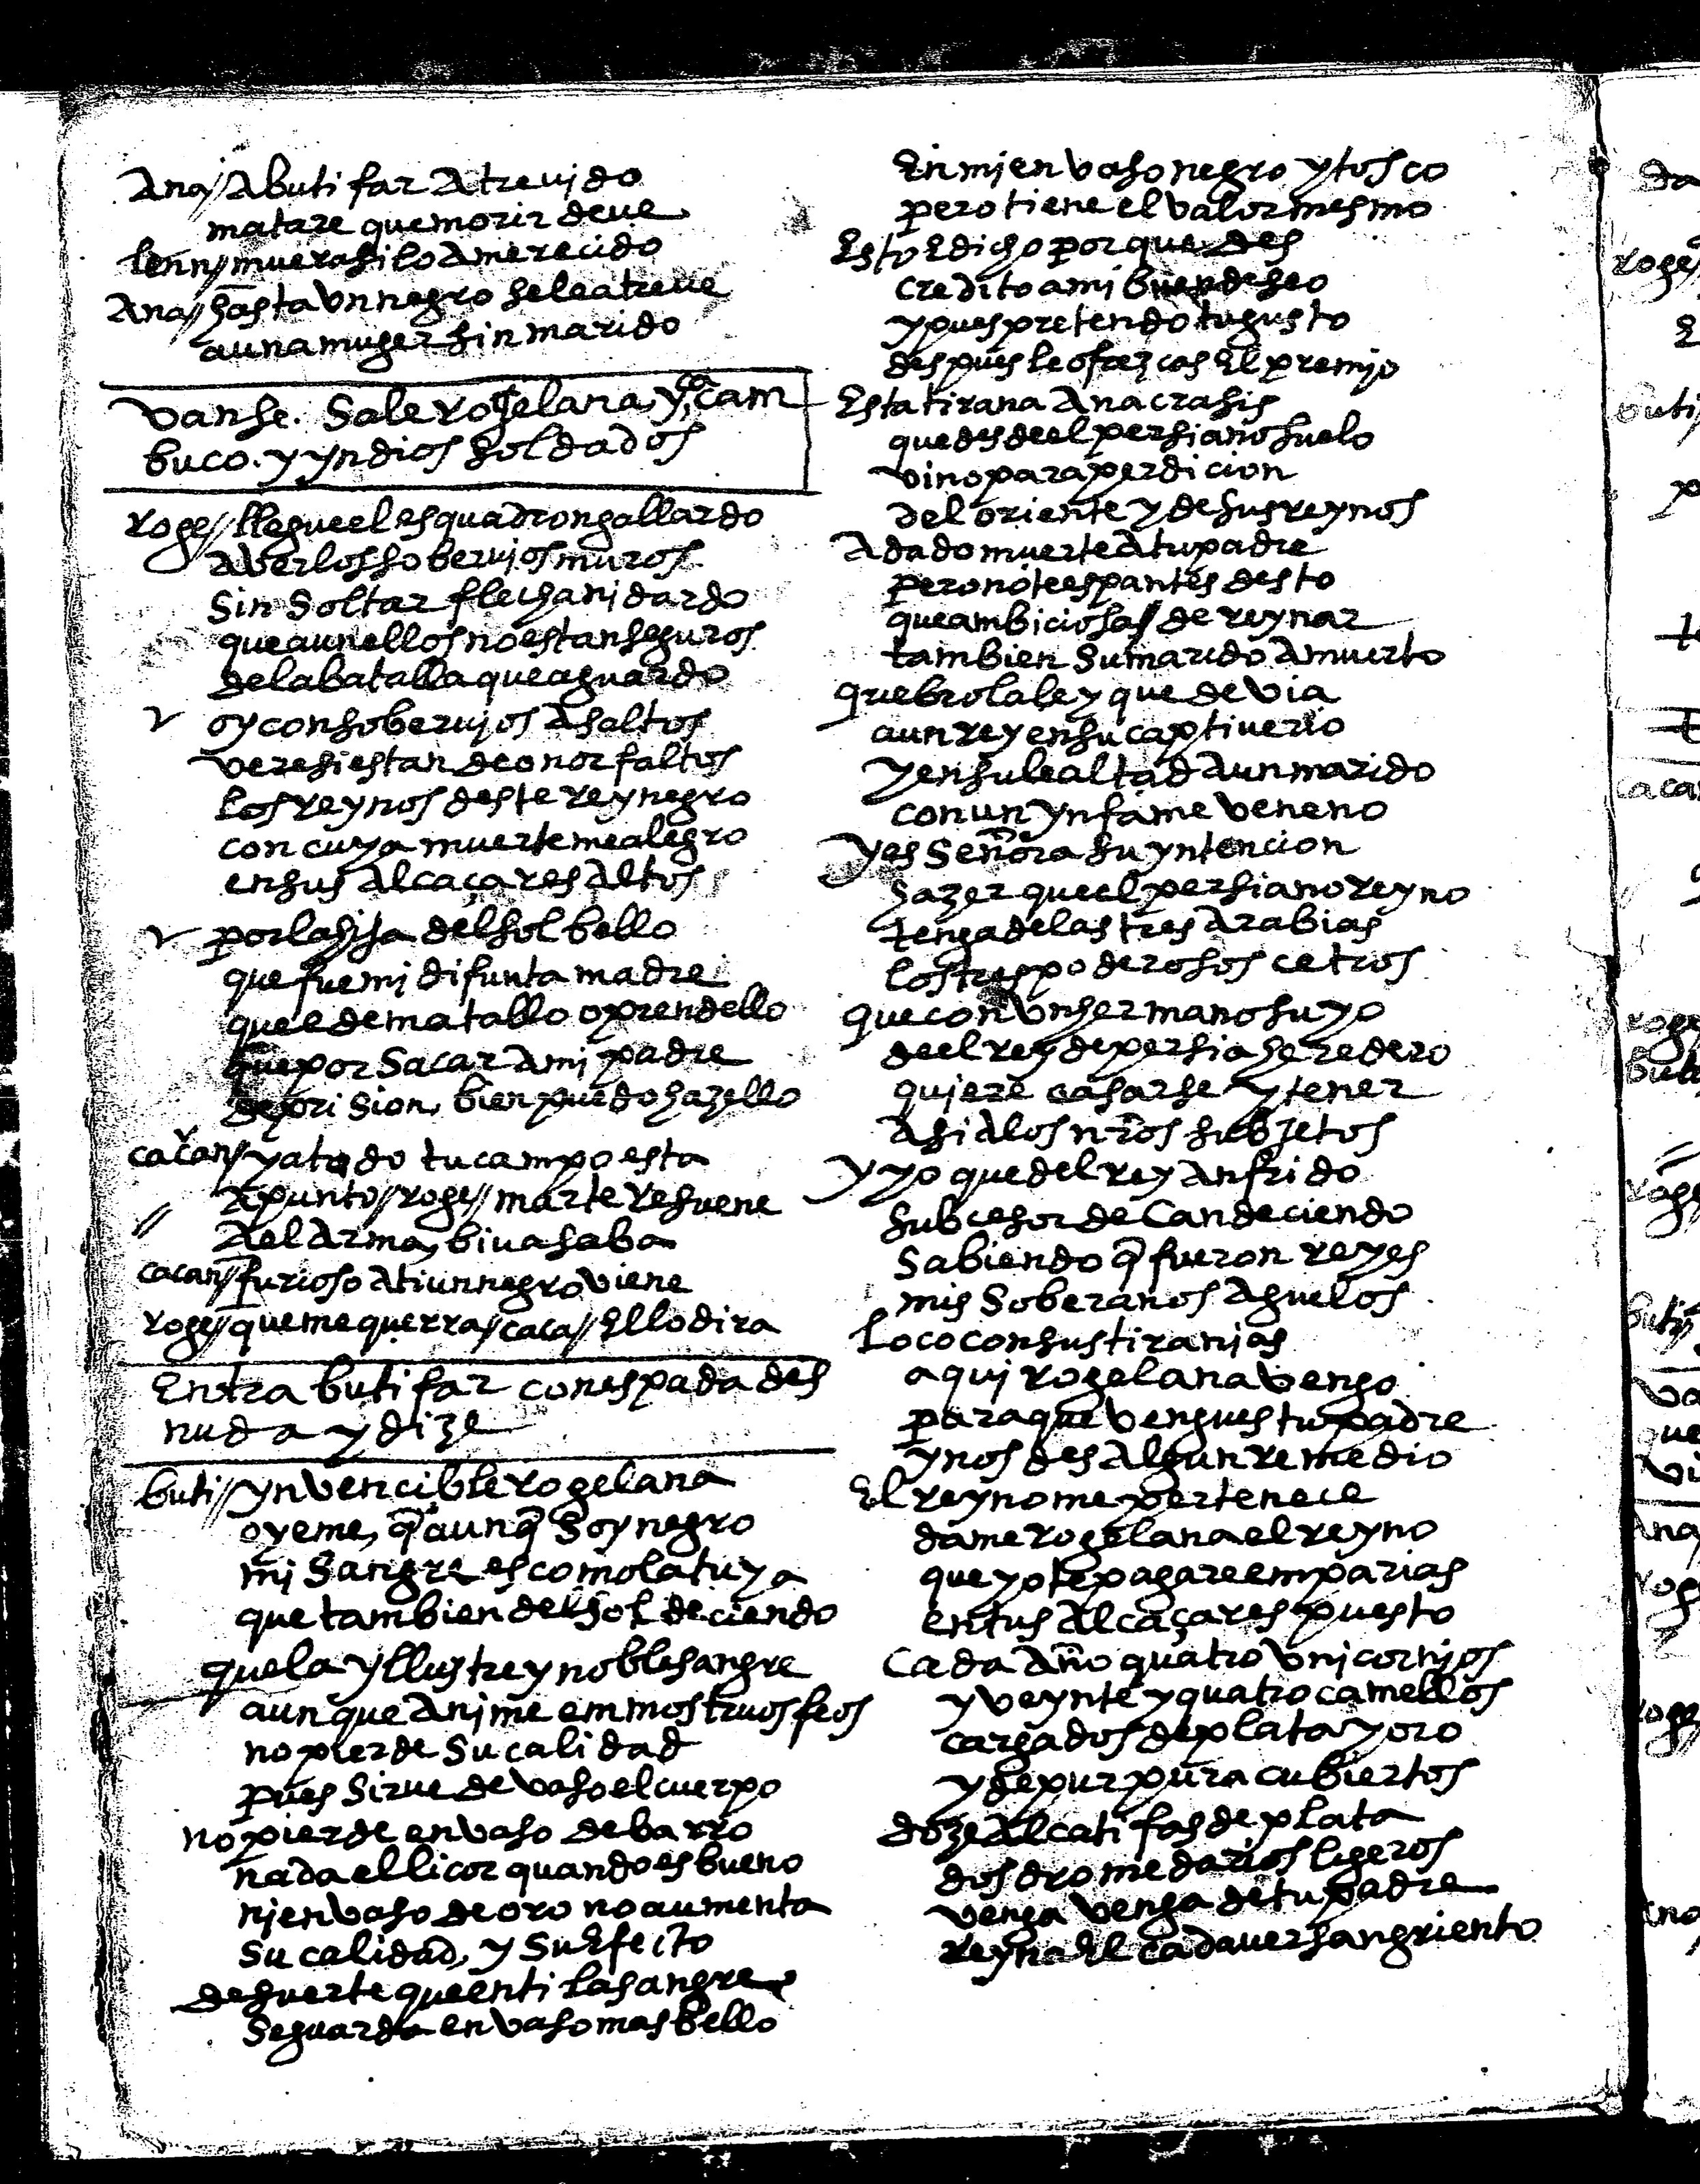 Ana// A butifar Atreuido
matare que morir deue
lenn// muera si lo A merecido
Ana// hasta Vn negro se le atreue
a una muger sin marido
Vanse. Sale rogelana, y cacam
buco. y yndios soldados
roge// llegue el esquadron gallardo
a ver los soberuios muros
sin soltar flecha ni dardo
que aun ellos no estan seguros
de la batalla que aguardo
oy con soberuios Asaltos
vere si estan de onor faltos
los reynos deste rey negro
con cuya muerte me alegro
en sus Alcaçares Altos
por la hija del sol bello
que fue mi difunta madre
que e de matallo o prendello
que por sacar A mi padre
de prision, bien puedo hazello
cacan// ya todo tu campo esta
A punto// roge// marte resuene
Ael Arma, biua saba
cacan// furioso A ti un negro viene
roge// que me querra// caca// Ello dira
Entra butifar con espada des
nuda y dize
buti// ynvencible rogelana
oyeme, q̃ aunq̃ soy negro
mi sangre es como la tuya
que tambien del sol deciendo
que la yllustre y noble sangre
aunque Anime em mostruos feos
no pierde su calidad
pues sirue de vaso el cuerpo
no pierde en vaso de barro
nada el licor quando es bueno
ni en vaso de oro no aumenta
su calidad, y su Efecto
de suerte que en ti la sangre
se guarda en vaso mas bello
En mi en vaso negro y tosco
pero tiene el valor mesmo
Esto E dicho porque des
credito a mi buen deseo
y pues pretendo tu gusto
despues le ofrezcas El premio
Esta tirana Anacrasis
que desde el persiano suelo
vino para perdicion
del oriente y de sus reynos
A dado muerte A tu padre
pero no te espantes desto
que ambiciosa de reynar
tambien su marido A muerto
quebro la ley que devia
a un rey en su captiuerio
y en su lealtad A un marido
con un ynfame veneno
y es Señora su yntencion
hazer que el persiano reyno
tenga de las tres Arabias
los tres poderosos cetros
que con Vn hermano suyo
de el rey de persia heredero
quiere casarse y tener
Asi A los nr̃os subjetos
y yo que del rey Anfrido
subcesor de Can deciendo
sabiendo q̃ fueron reyes
mis soberanos Aguelos
loco con sus tiranias
aqui rogelana vengo
para que vengues tu padre
y nos des Algun remedio
El reyno me pertenece
dame rogelana el reyno
que yo te pagare em parias
en tus Alcaçares puesto
Cada Año quatro Vnicornios
y veynte y quatro camellos
cargados de plata y oro
y de purpura cubiertos
doze Alcatifas de plata
dos dromedarios ligeros
venga venga de tu padre
reyna El cadauer sangriento